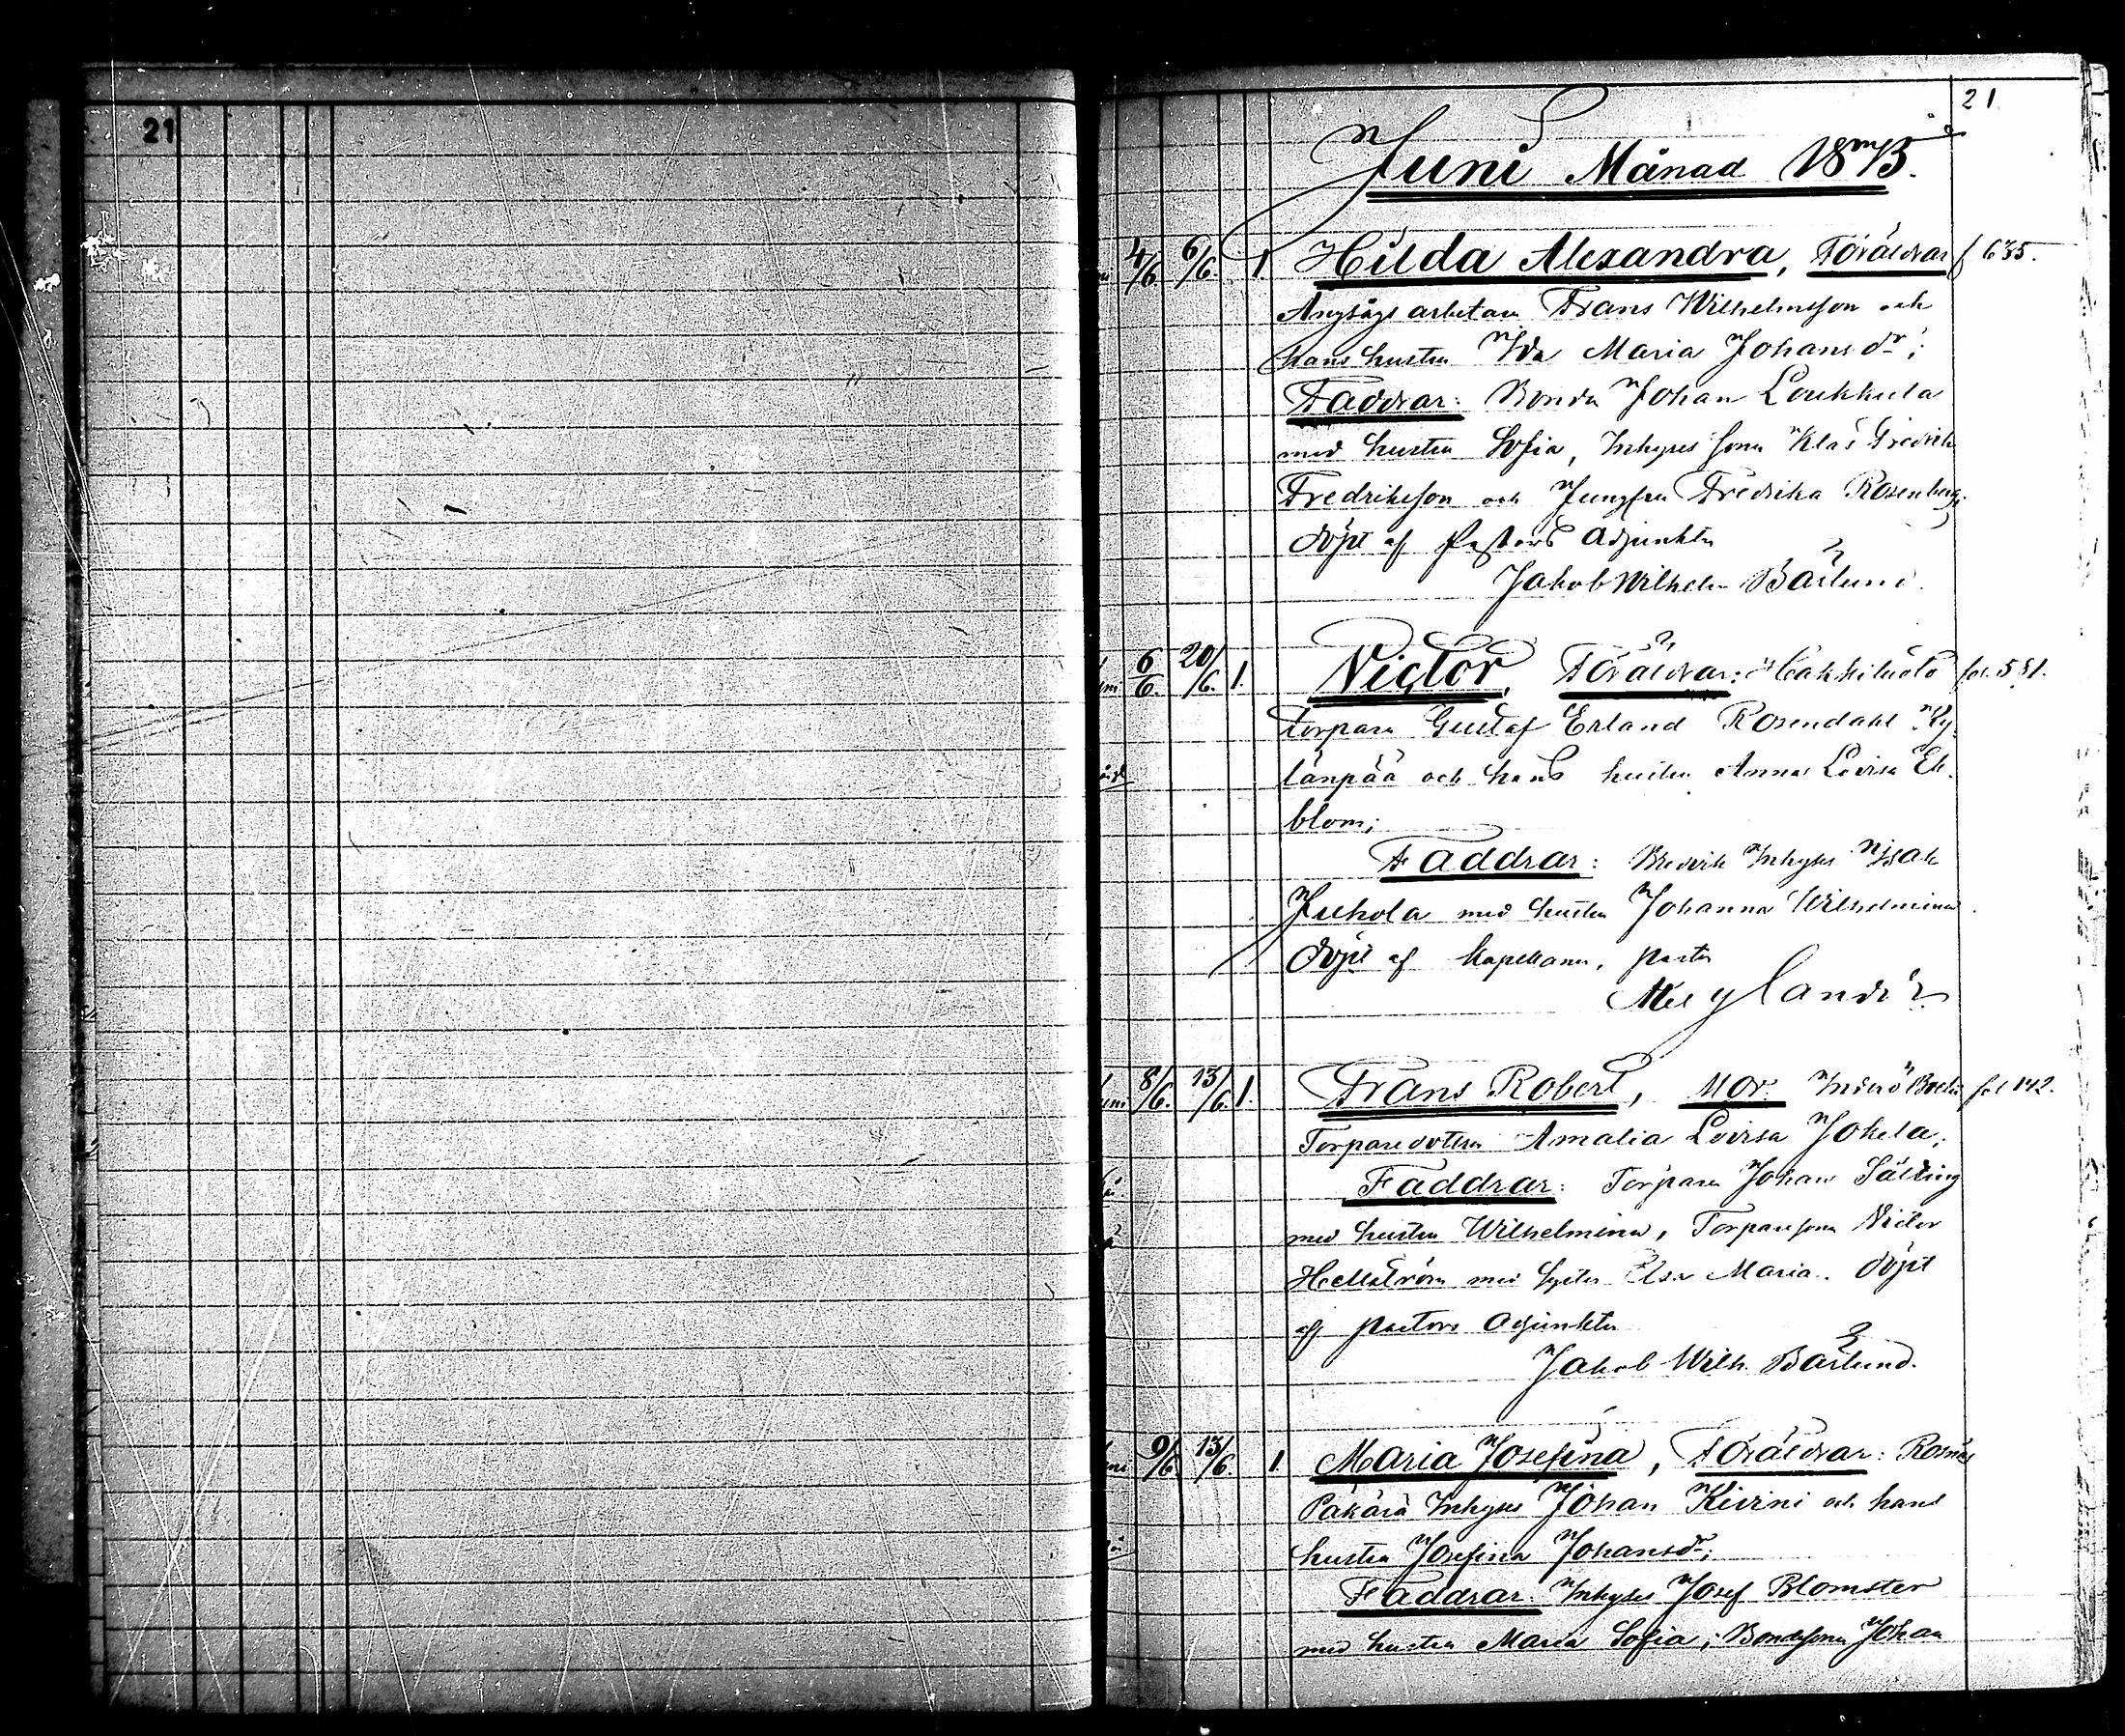 21
21
Juni Månad 1875.
4/6 6/6 1 Hilda Alexandra, Föräldrar f 635.
Ångsågs arbetare Frans Wilhelmsson och
hans hustru Ida Maria Johansdr;
Faddrar: Bonden Johan Loukkula
med hustru Sofia, Inhyses sonen Klas Fredrik
Fredriksson och Jungfru Fredrika Rosenberg.
döpt af Pastors Adjunkten
Jakob Wilhelm Bärlund.
6/6. 20/6. 1. Victor, Föräldrar: Lakkiluoto fol. 581.
torparen Gustaf Erland Rosendahl Ky-
länpää och hans hustru Anna Lovisa Ek-
blom;
Faddrar: Inhyses Isak
Jukola med hustru Johanna Wilhelmina
döpt af Kapellanen, pastor
8/6. 13/6. 1. Frans Robert, Mor: fol 142.
Torparedottren Amalia Lovisa Jokela;
Faddrar: Torparen Johan Sälling
med hustru Wilhelmina, Torparesonen Victor
Hellström med syster Elsa Maria. döpt
af pastors Adjunkten
Jakob Wilh. Bärlund.
9/6 13/6 1. Maria Josefina, Föräldrar: Rosnäs
Päkärä Inhyses Johan Kivini och hans
hustru Josefina Johansdr;
Faddrar: Inhyses Josef Blomster
med hustru Maria Sofia; Bondesonen Johan